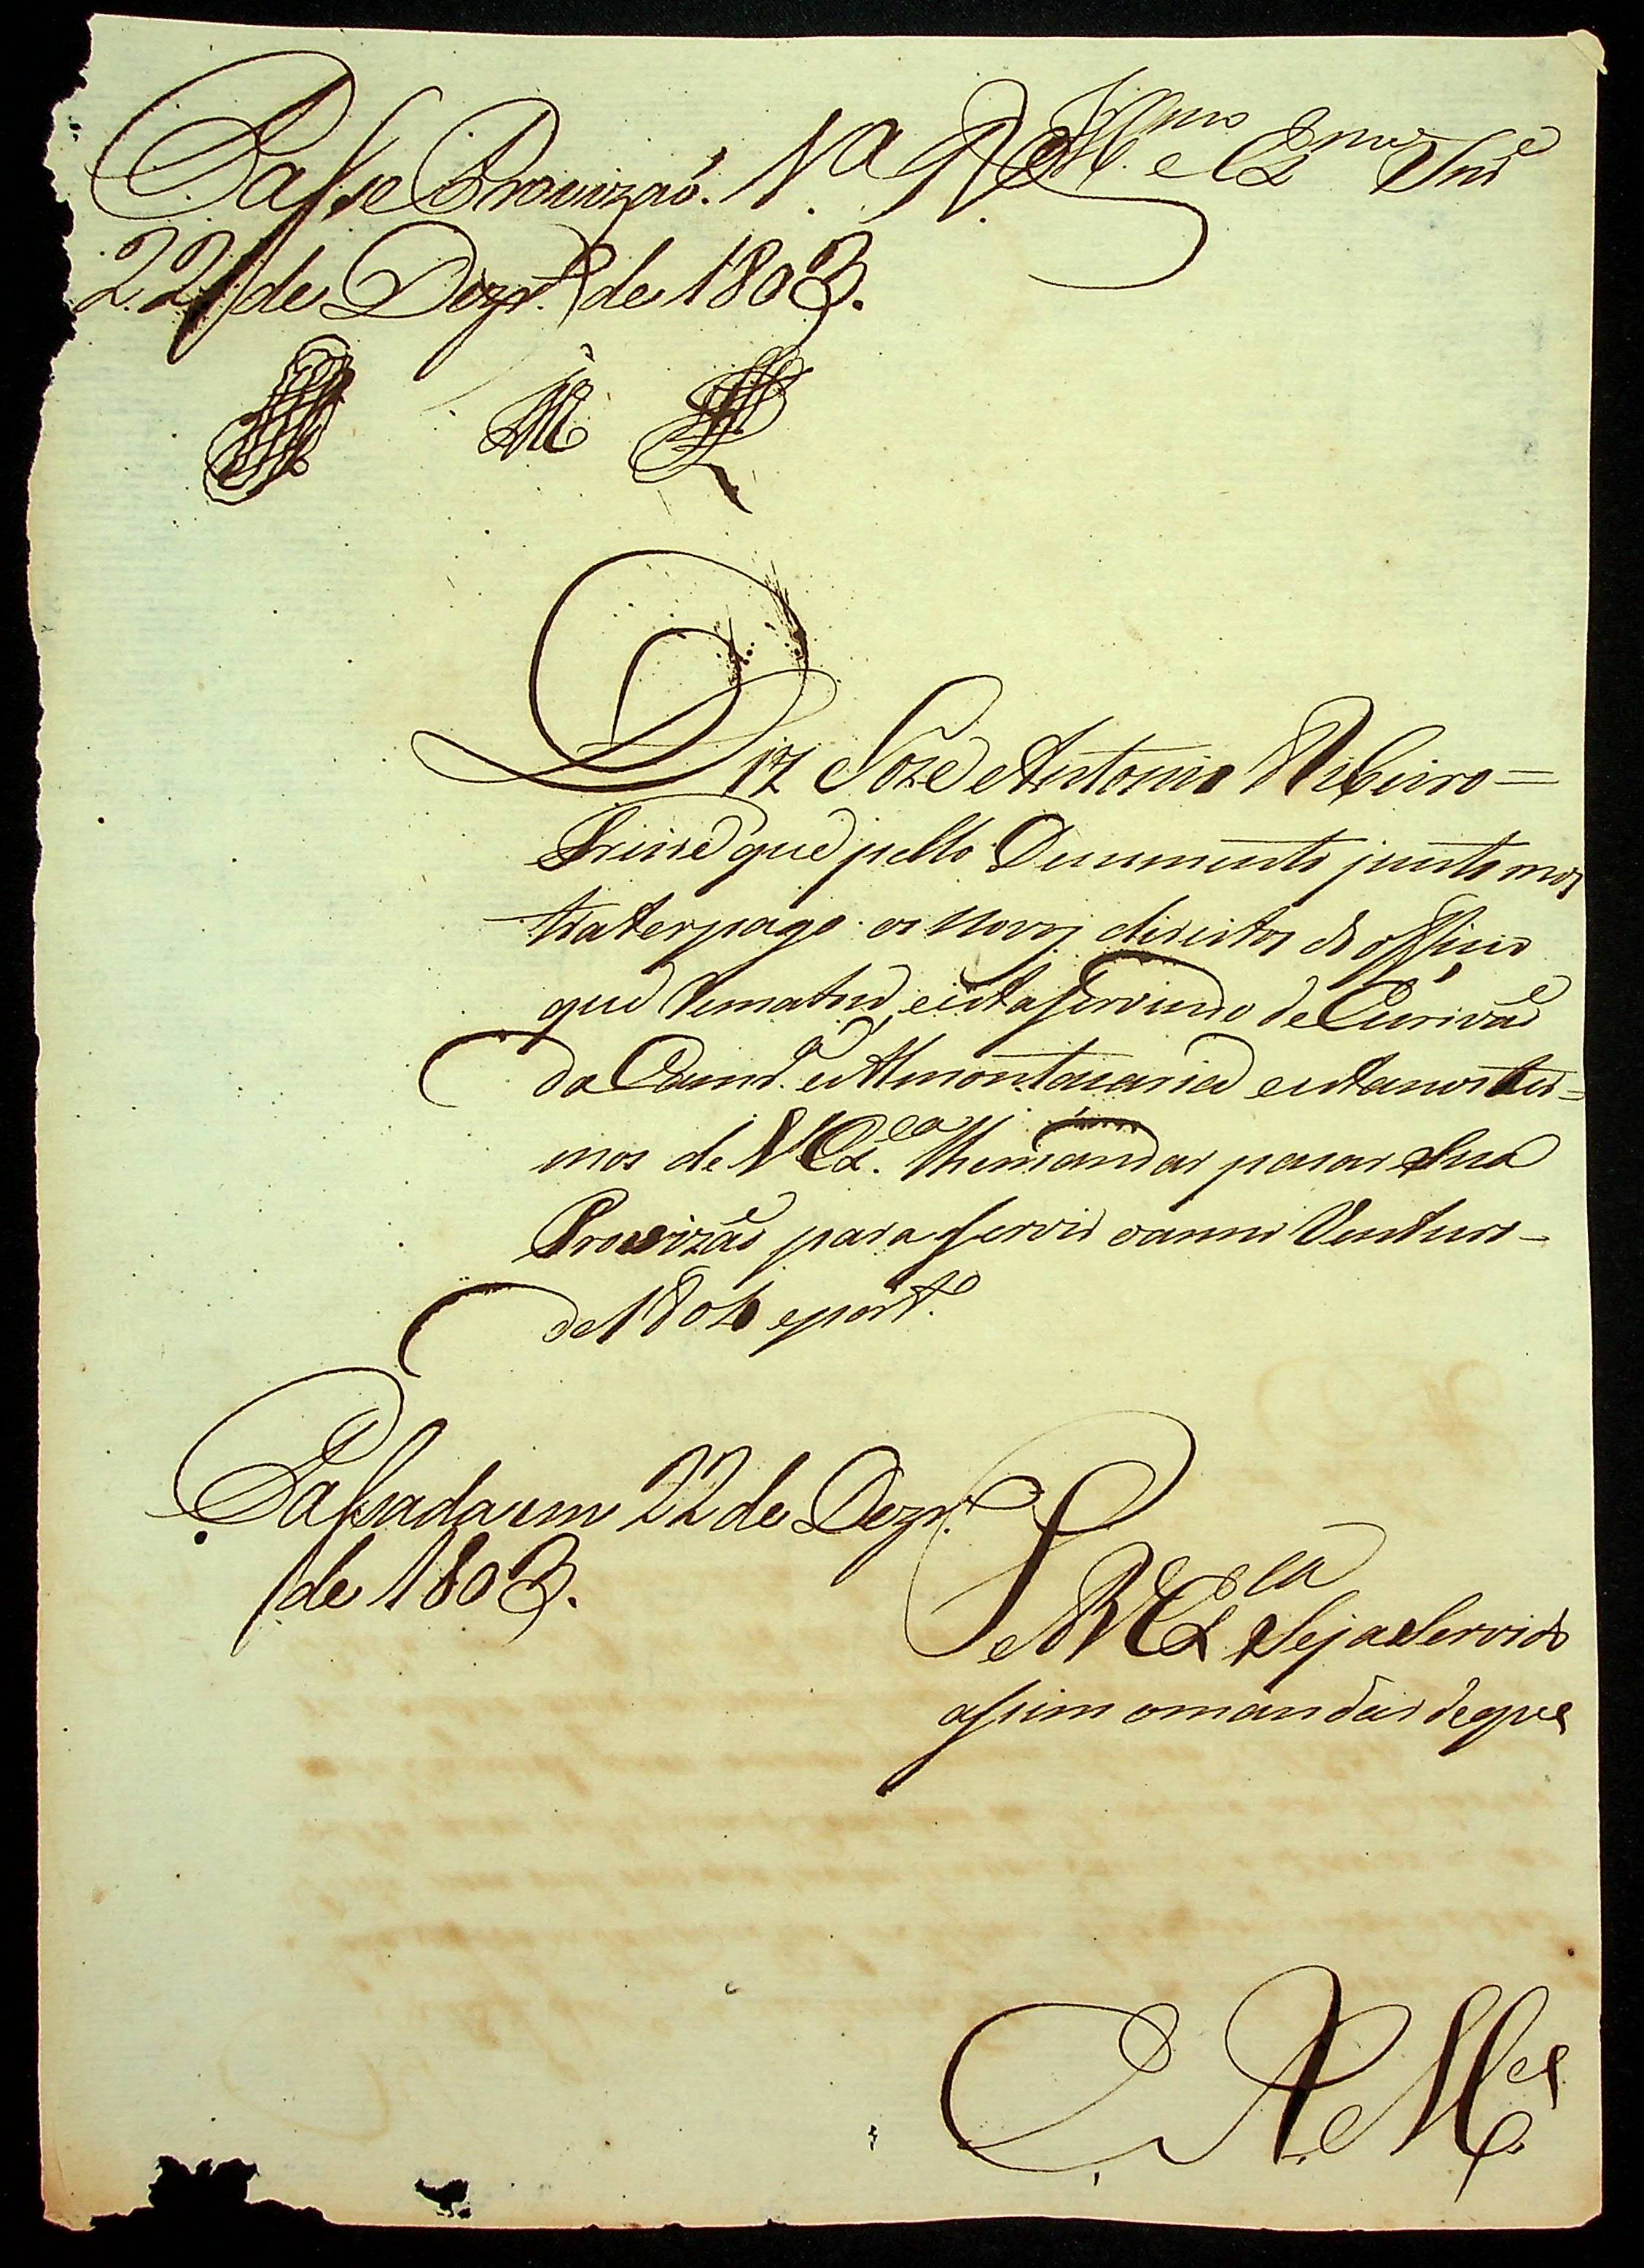 Passe Provizaó. Va. Ra. Illmo. e Exmo Snr
22 de Dezr.o de 1803.
Diz Joze Antonio Ribeiro =
que pello Documento junto mos
tra ter pago os novos direitos do officio
que Rematou, e esta servindo de Escrivaõ
da Camr.a e Almontacaria e esta nos ter=
mos de V Ex.cia lhe mandar pasar Sua
Provizaõ para servir o anno Venturo
de 1804 e port.o
Passada em 22 de Dezr.o
de 1803.
P a V Ex.cia Seja Servido
assim o mandar de que
E. R. Mce